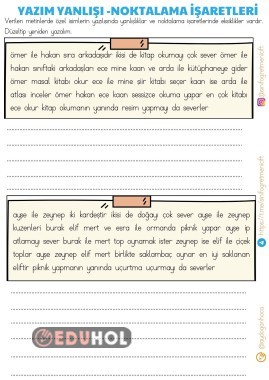 YAZIM YANLIŞI -NOKTALAMA İŞARETLERİ
Verilen metinlerde özel isimlerin yazılışında yanlışlıklar ve noktalama işaretlerinde eksiklikler vardır.
Düzeltip yeniden yazalım.
ömer ile hakan sıra arkadaşıdır ikisi de kitap okumayı çok sever ömer ile
hakan sınıftaki arkadaşları ece mine kaan ve arda ile kütüphaneye gider
ömer masal kitabı okur ece ile mine şiir kitabı seçer kaan ise arda ile
atlası inceler ömer hakan ece kaan sessizce okuma yapar en çok kitabı
ece okur kitap okumanın yanında resim yapmayı da severler
ayşe ile zeynep iki kardeştir ikisi de doğayı çok sever ayşe ile zeynep
kuzenleri burak elif mert ve esra ile ormanda piknik yapar ayşe ip
atlamayı sever burak ile mert top oynamak ister zeynep ise elif ile çiçek
toplar ayşe zeynep elif mert birlikte saklambaç oynar en iyi saklanan
eliftir piknik yapmanın yanında uçurtma uçurmayı da severler
EDUHOL